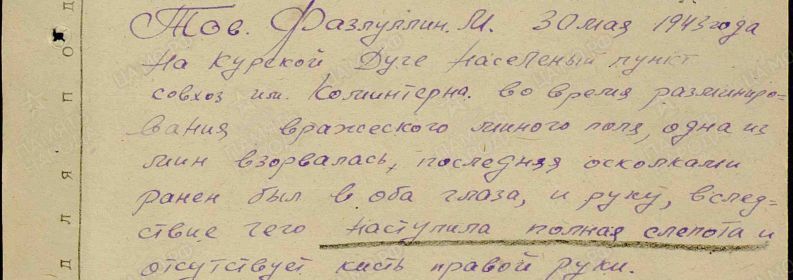 Тов. Фазлуллин. М. 30 мая 1943 года
на Курской Дуге населеный пункт
совхоз им. Коминтерна. во время разминиро-
вания вражеского минного поля, одна из
мин взорвалась, последняя осколками
ранен был в оба глаза, и руку, вслед-
ствие чего наступила полная слепота и
отсутствует кисть правой руки.
для под